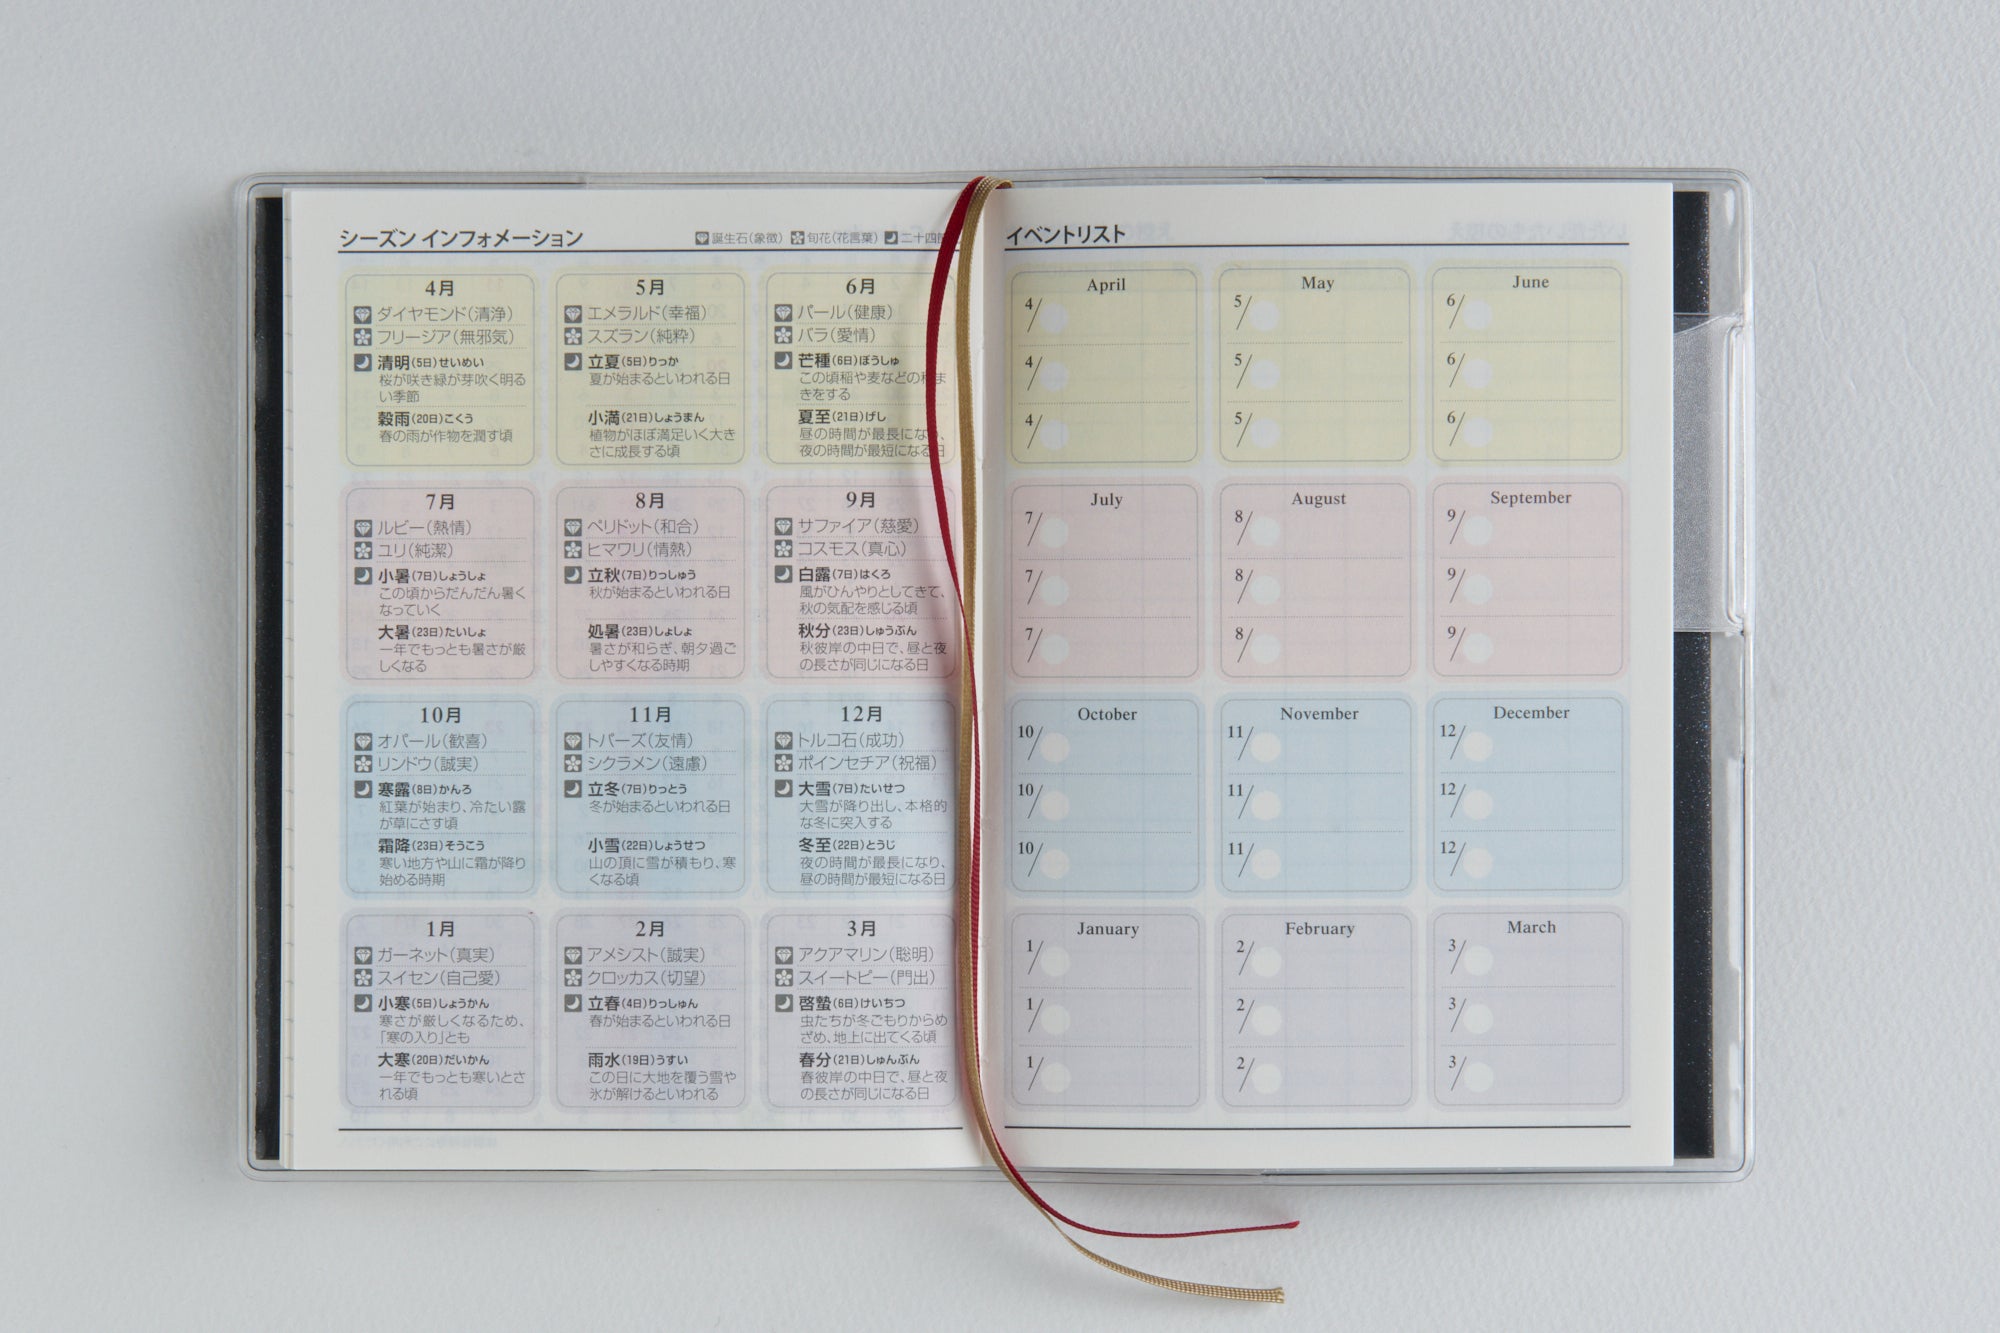 シーズン インフォメーション
誕生石(象徴) 旬花(花言葉) 二十四節
4月
ダイヤモンド(清浄)
フリージア(無邪気)
清明(5日)せいめい
桜が咲き緑が芽吹く明る
い季節
穀雨(20日)こくう
春の雨が作物を潤す頃
5月
エメラルド(幸福)
スズラン(純粋)
立夏(5日)りっか
夏が始まるといわれる日
小満(21日)しょうまん
植物がほぼ満足いく大き
さに成長する頃
6月
パール(健康)
バラ(愛情)
芒種(6日)ぼうしゅ
この頃稲や麦などの種ま
きをする
夏至(21日)げし
昼の時間が最長になり、
夜の時間が最短になる日
7月
ルビー(熱情)
ユリ(純潔)
小暑(7日)しょうしょ
この頃からだんだん暑く
なっていく
大暑(23日)たいしょ
一年でもっとも暑さが厳
しくなる
8月
ペリドット(和合)
ヒマワリ(情熱)
立秋(7日)りっしゅう
秋が始まるといわれる日
処暑(23日)しょしょ
暑さが和らぎ、朝夕過ご
しやすくなる時期
9月
サファイア(慈愛)
コスモス(真心)
白露(7日)はくろ
風がひんやりとしてきて、
秋の気配を感じる頃
秋分(23日)しゅうぶん
秋彼岸の中日で、昼と夜
の長さが同じになる日
10月
オパール(歓喜)
リンドウ(誠実)
寒露(8日)かんろ
紅葉が始まり、冷たい露
が草にさす頃
霜降(23日)そうこう
寒い地方や山に霜が降り
始める時期
11月
トパーズ(友情)
シクラメン(遠慮)
立冬(7日)りっとう
冬が始まるといわれる日
小雪(22日)しょうせつ
山の頂に雪が積もり、寒
くなる頃
12月
トルコ石(成功)
ポインセチア(祝福)
大雪(7日)たいせつ
大雪が降り出し、本格的
な冬に突入する
冬至(22日)とうじ
夜の時間が最長になり、
昼の時間が最短になる日
1月
ガーネット(真実)
スイセン(自己愛)
小寒(5日)しょうかん
寒さが厳しくなるため、
「寒の入り」とも
大寒(20日)だいかん
一年でもっとも寒いとさ
れる頃
2月
アメシスト(誠実)
クロッカス(切望)
立春(4日)りっしゅん
春が始まるといわれる日
雨水(19日)うすい
この日に大地を覆う雪や
氷が解けるといわれる
3月
アクアマリン(聡明)
スイートピー(門出)
啓蟄(6日)けいちつ
虫たちが冬ごもりからめ
ざめ、地上に出てくる頃
春分(21日)しゅんぶん
春彼岸の中日で、昼と夜
の長さが同じになる日
イベントリスト
April
4/
4/
4/
May
5/
5/
5/
June
6/
6/
6/
July
7/
7/
7/
August
8/
8/
8/
September
9/
9/
9/
October
10/
10/
10/
November
11/
11/
11/
December
12/
12/
12/
January
1/
1/
1/
February
2/
2/
2/
March
3/
3/
3/